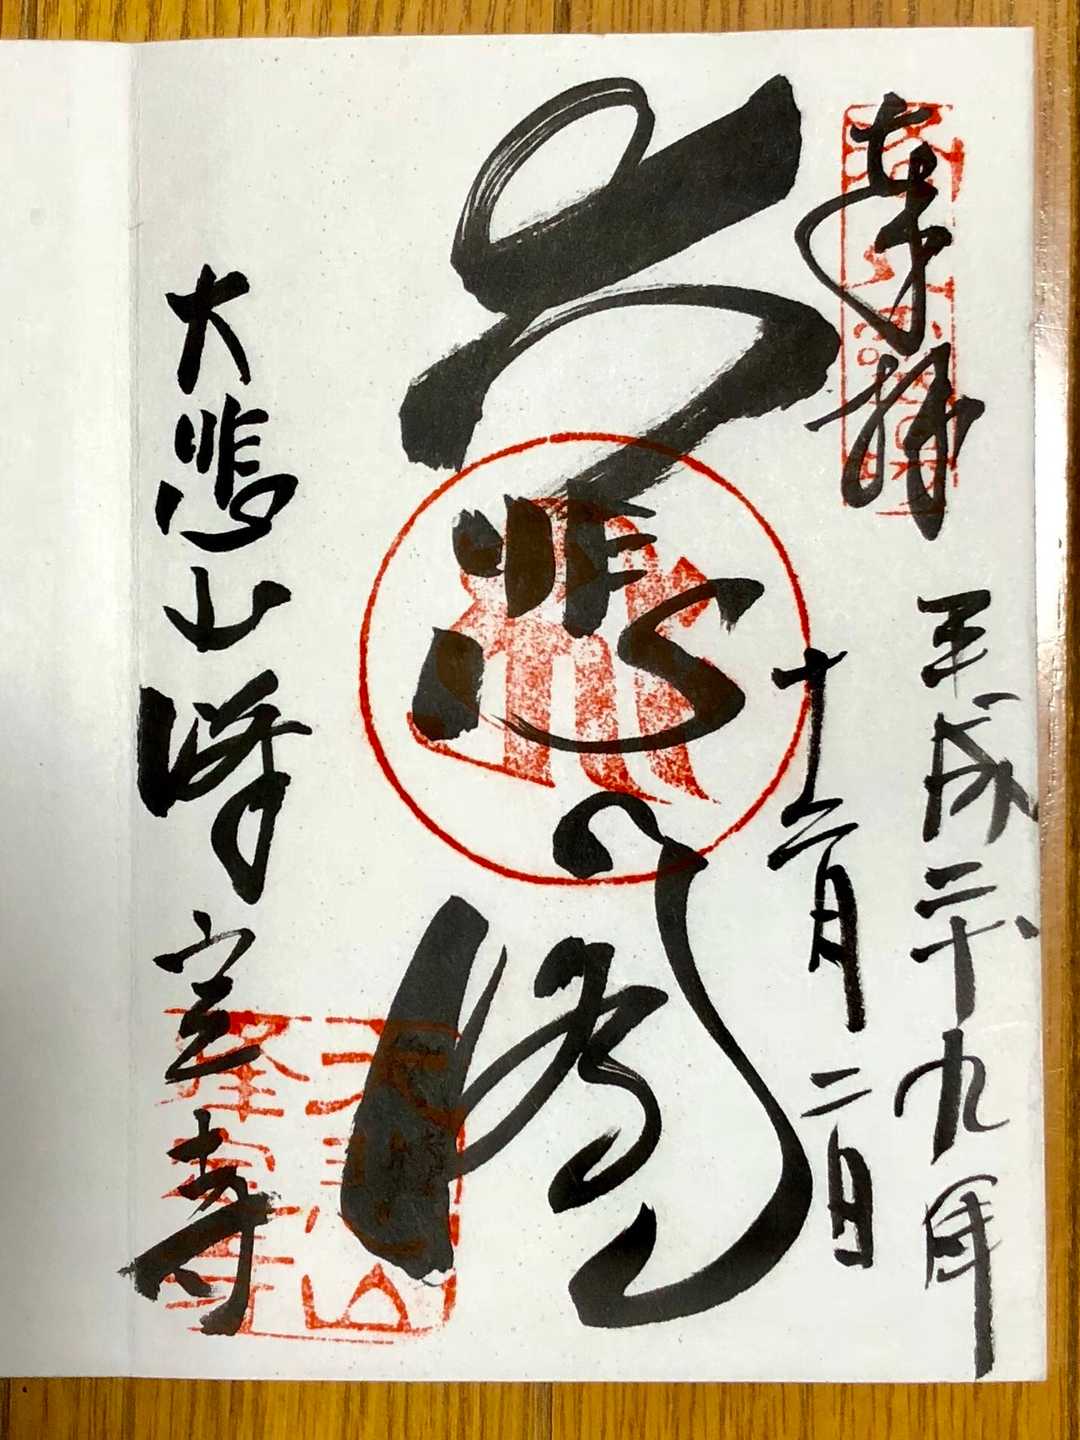 奉拝
平成二十九年
十二月二日
大悲閣
大悲山峰定寺